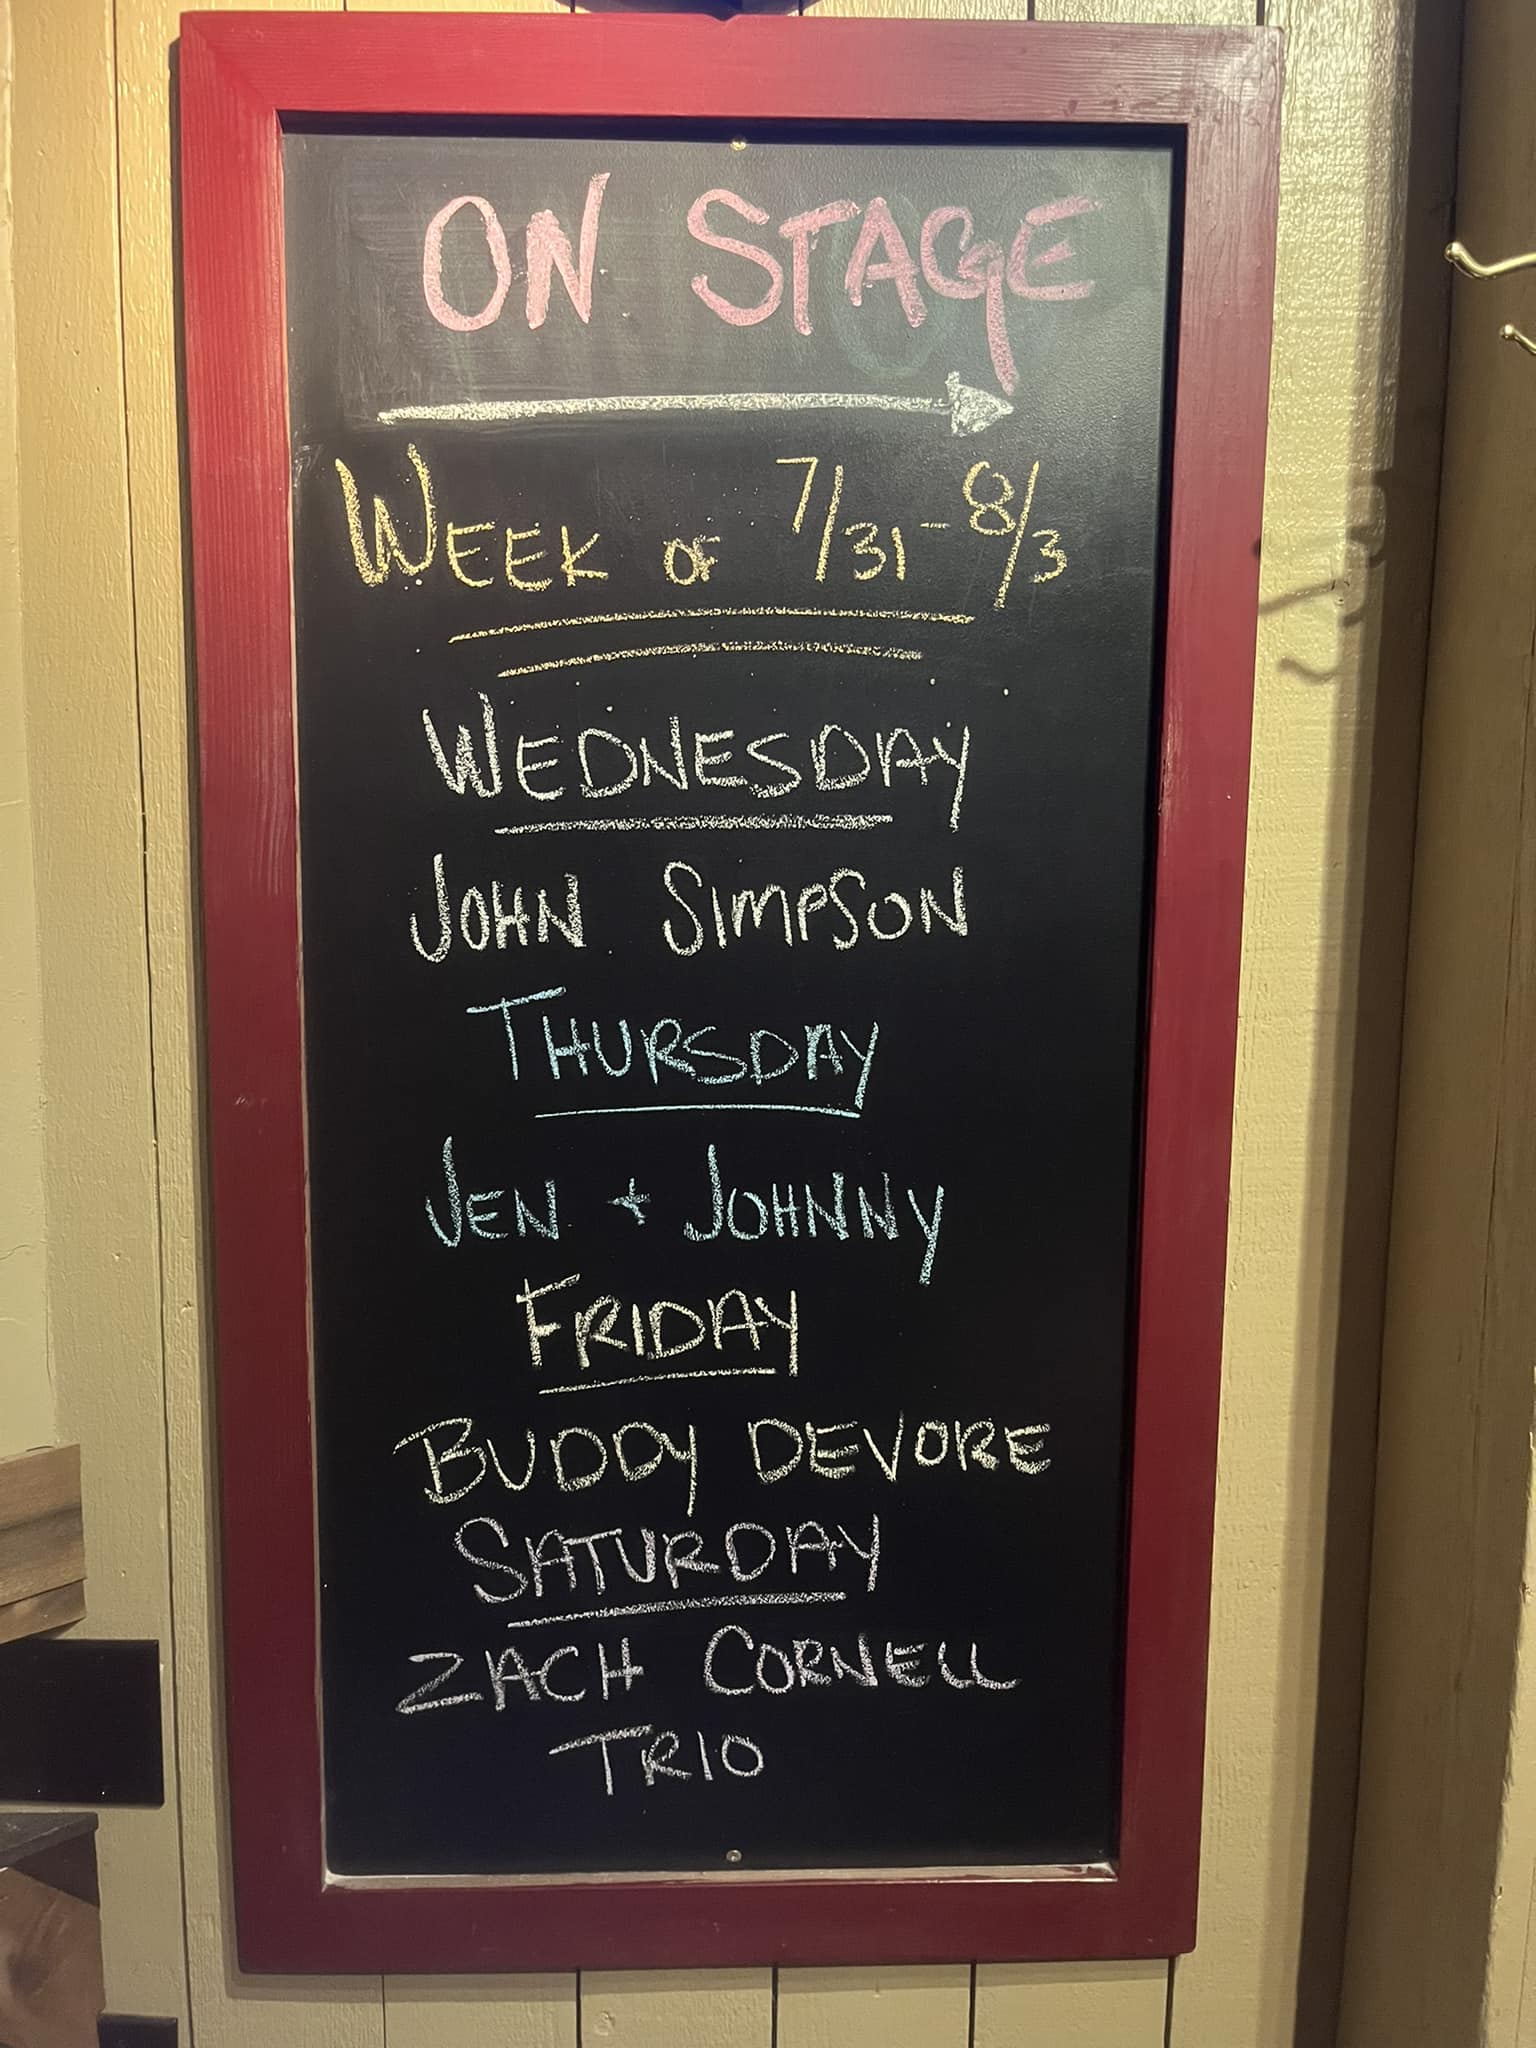 ON STAGE
WEEK OF 7/31-8/3
WEDNESDAY
JOHN SIMPSON
THURSDAY
JEN + JOHNNY
FRIDAY
BUDDY DEVORE
SATURDAY
ZACH CORNELL
TRIO